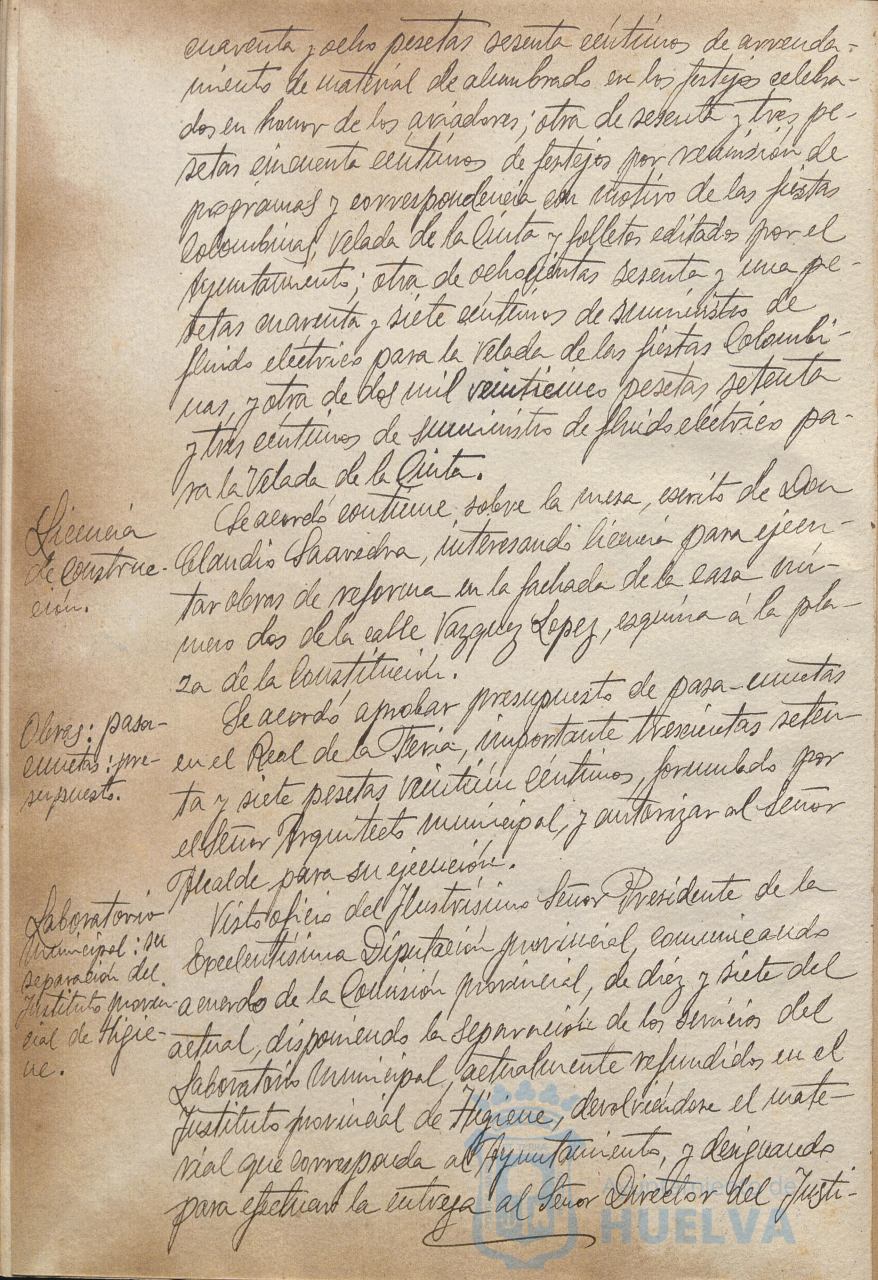 cuarenta y ocho pesetas sesenta céntimos de arrenda-
miento de material de alumbrado en los festejos celebra-
dos en honor de los aviadores; otra de sesenta y tres pe-
setas cincuenta céntimos de festejos por remisión de
programas y correspondencia con motivo de las fiestas
Colombinas, Velada de la Cinta y folletos editados por el
Ayuntamiento; otra de ochocientas sesenta y una pe-
setas cuarenta y siete céntimos de suministro de
fluido eléctrico para la Velada de las fiestas Colombi-
nas, y otra de dos mil veinticinco pesetas setenta
y tres céntimos de suministro de fluido eléctrico pa-
ra la Velada de la Cinta.
Licencia
de construc-
ción.
Se acordó continúe sobre la mesa, escrito de Don
Claudio Saavedra, interesando licencia para ejecu-
tar obras de reforma en la fachada de la casa nú-
mero dos de la calle Vazquez Lopez, esquina á la pla-
za de la Constitución.
Obras: pasa-
cunetas: pre-
supuesto.
Se acordó aprobar presupuesto de pasa-cunetas
en el Real de la Feria, importante trescientas seten-
ta y siete pesetas veintiún céntimos, formulado por
el Señor Arquitecto municipal, y autorizar al Señor
Alcalde para su ejecución.
Laboratorio
Municipal: su
separación del
Instituto provin-
cial de Higie-
ne.
Visto oficio del Ilustrísimo Señor Presidente de la
Excelentísima Diputación provincial, comunicando
acuerdo de la Comisión provincial, de diez y siete del
actual, disponiendo la separación de los servicios del
Laboratorio Municipal, actualmente refundidos en el
Instituto provincial de Higiene, devolviéndose el mate-
rial que corresponda al Ayuntamiento, y designando
para efectuar la entrega al Señor Director del Insti-
Ayuntamiento de
HUELVA